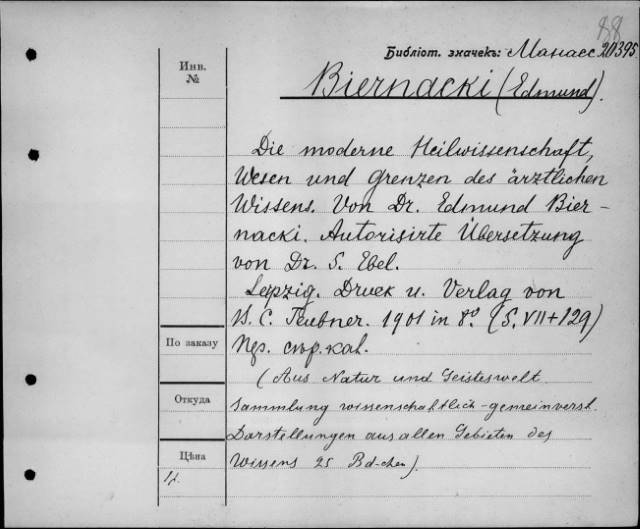 88
Библіот. значекъ: Манасс 20395.
Инв.
№
Biernacki (Edmund).
Die moderne Heilwissenschaft,
Wesen und Grenzen des ärztlichen
Wissens. Von Dr. Edmund Bier-
nacki. Autorisirte Übersetzung
von Dr. S. Ebel.
Leipzig. Druck u. Verlag von
B. C. Teubner. 1901 in 8º. (S. VII+129)
По заказу
(Aus Natur und Geisteswelt.
Откуда
Sammlung wissenschaftlich-gemeinverst.
Darstellungen aus allen Gebieten des
Цѣна
Wissens 25 Bd-chen).